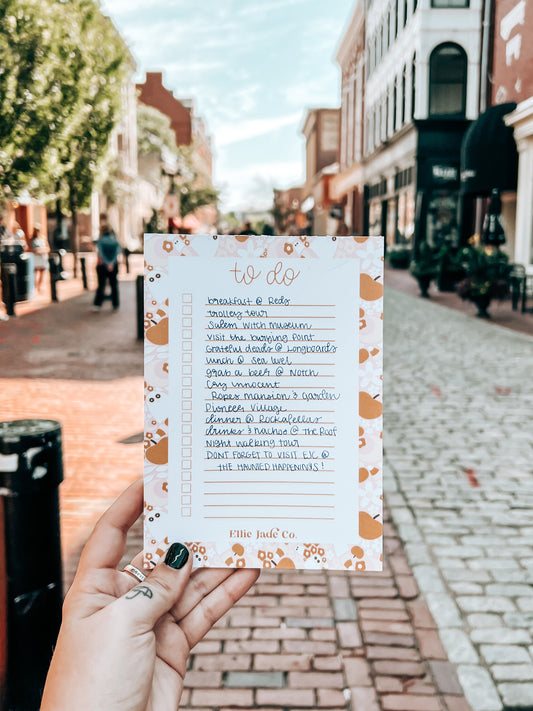 to do
breakfast @ Reds
trolley tour
Salem Witch Museum
Visit the burying Point
Grateful deads @ Longboards
lunch @ Sea level
grab a beer @ Notch
Cry Innocent
Ropes mansion & garden
Pioneer Village
dinner @ Rockafellas
drinks & nachos @ The Roof
Night walking tour
DON'T FORGET TO VISIT EJC @
THE HAUNTED HAPPENINGS!
Ellie Jade Co.